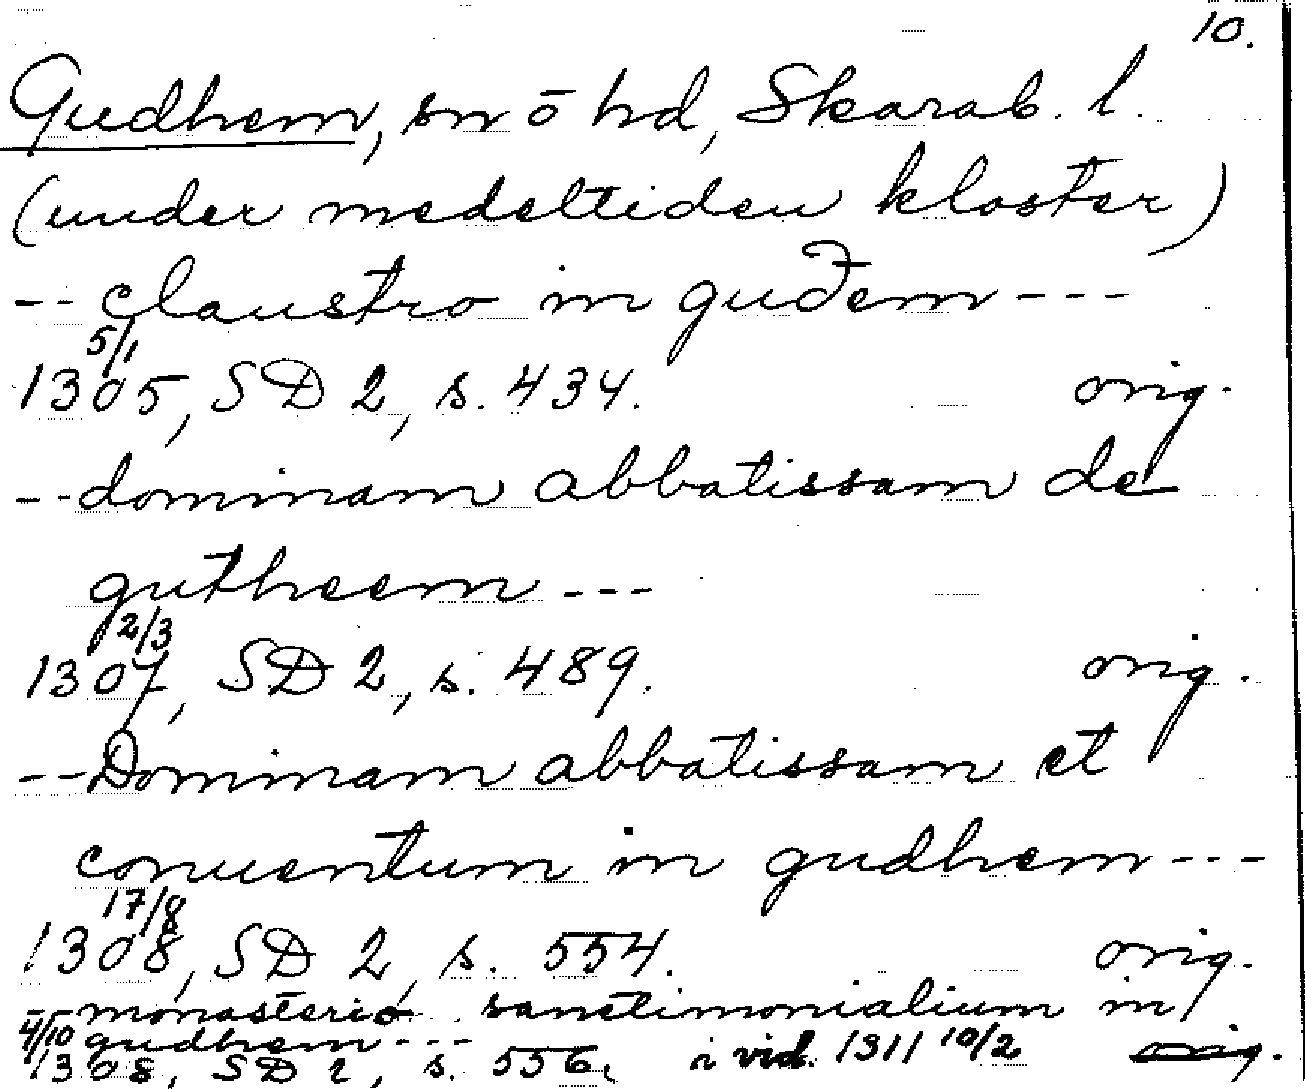 10.
Gudhem, sn o hd, Skarab. l.
(under medeltiden kloster)
-- claustro in guðem ---
5/1
1305, SD 2, s. 434. orig.
-- dominam abbatissam de
gutheem ---
2/3
1307, SD 2, s. 489. orig.
-- Dominam abbatissam et
conuentum in gudhem ---
17/8
1308, SD 2, s. 554. orig.
- monasterio sanctimonialium in
4/10 gudhem ---
1308, SD 2, s. 556. i vid. 1311 10/2 orig.